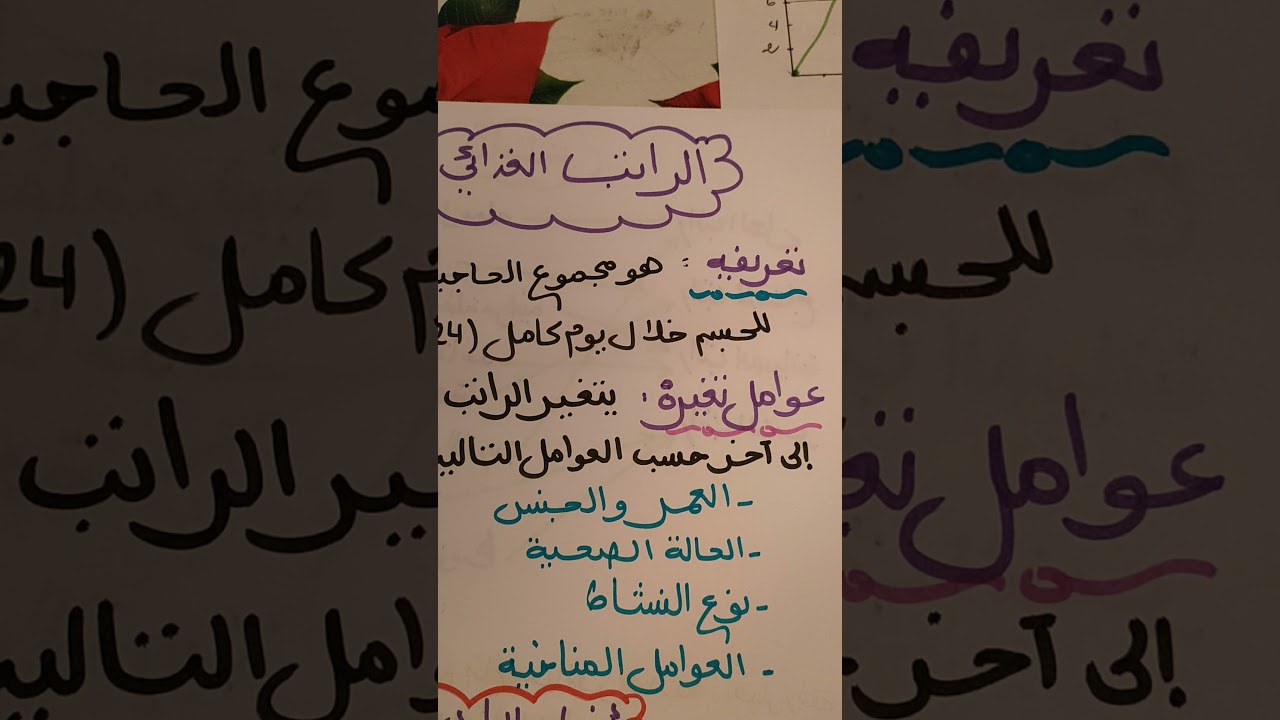 6
4
2
الراتب الغذائي
تعريفه : هو مجموع الحاجيـ
للجسم خلال يوم كامل (24
عوامل تغيره : يتغير الراتب
إلى آخر حسب العوامل التاليـ
- العمر والجنس
- الحالة الصحية
- نوع النشاط
- العوامل المناخية